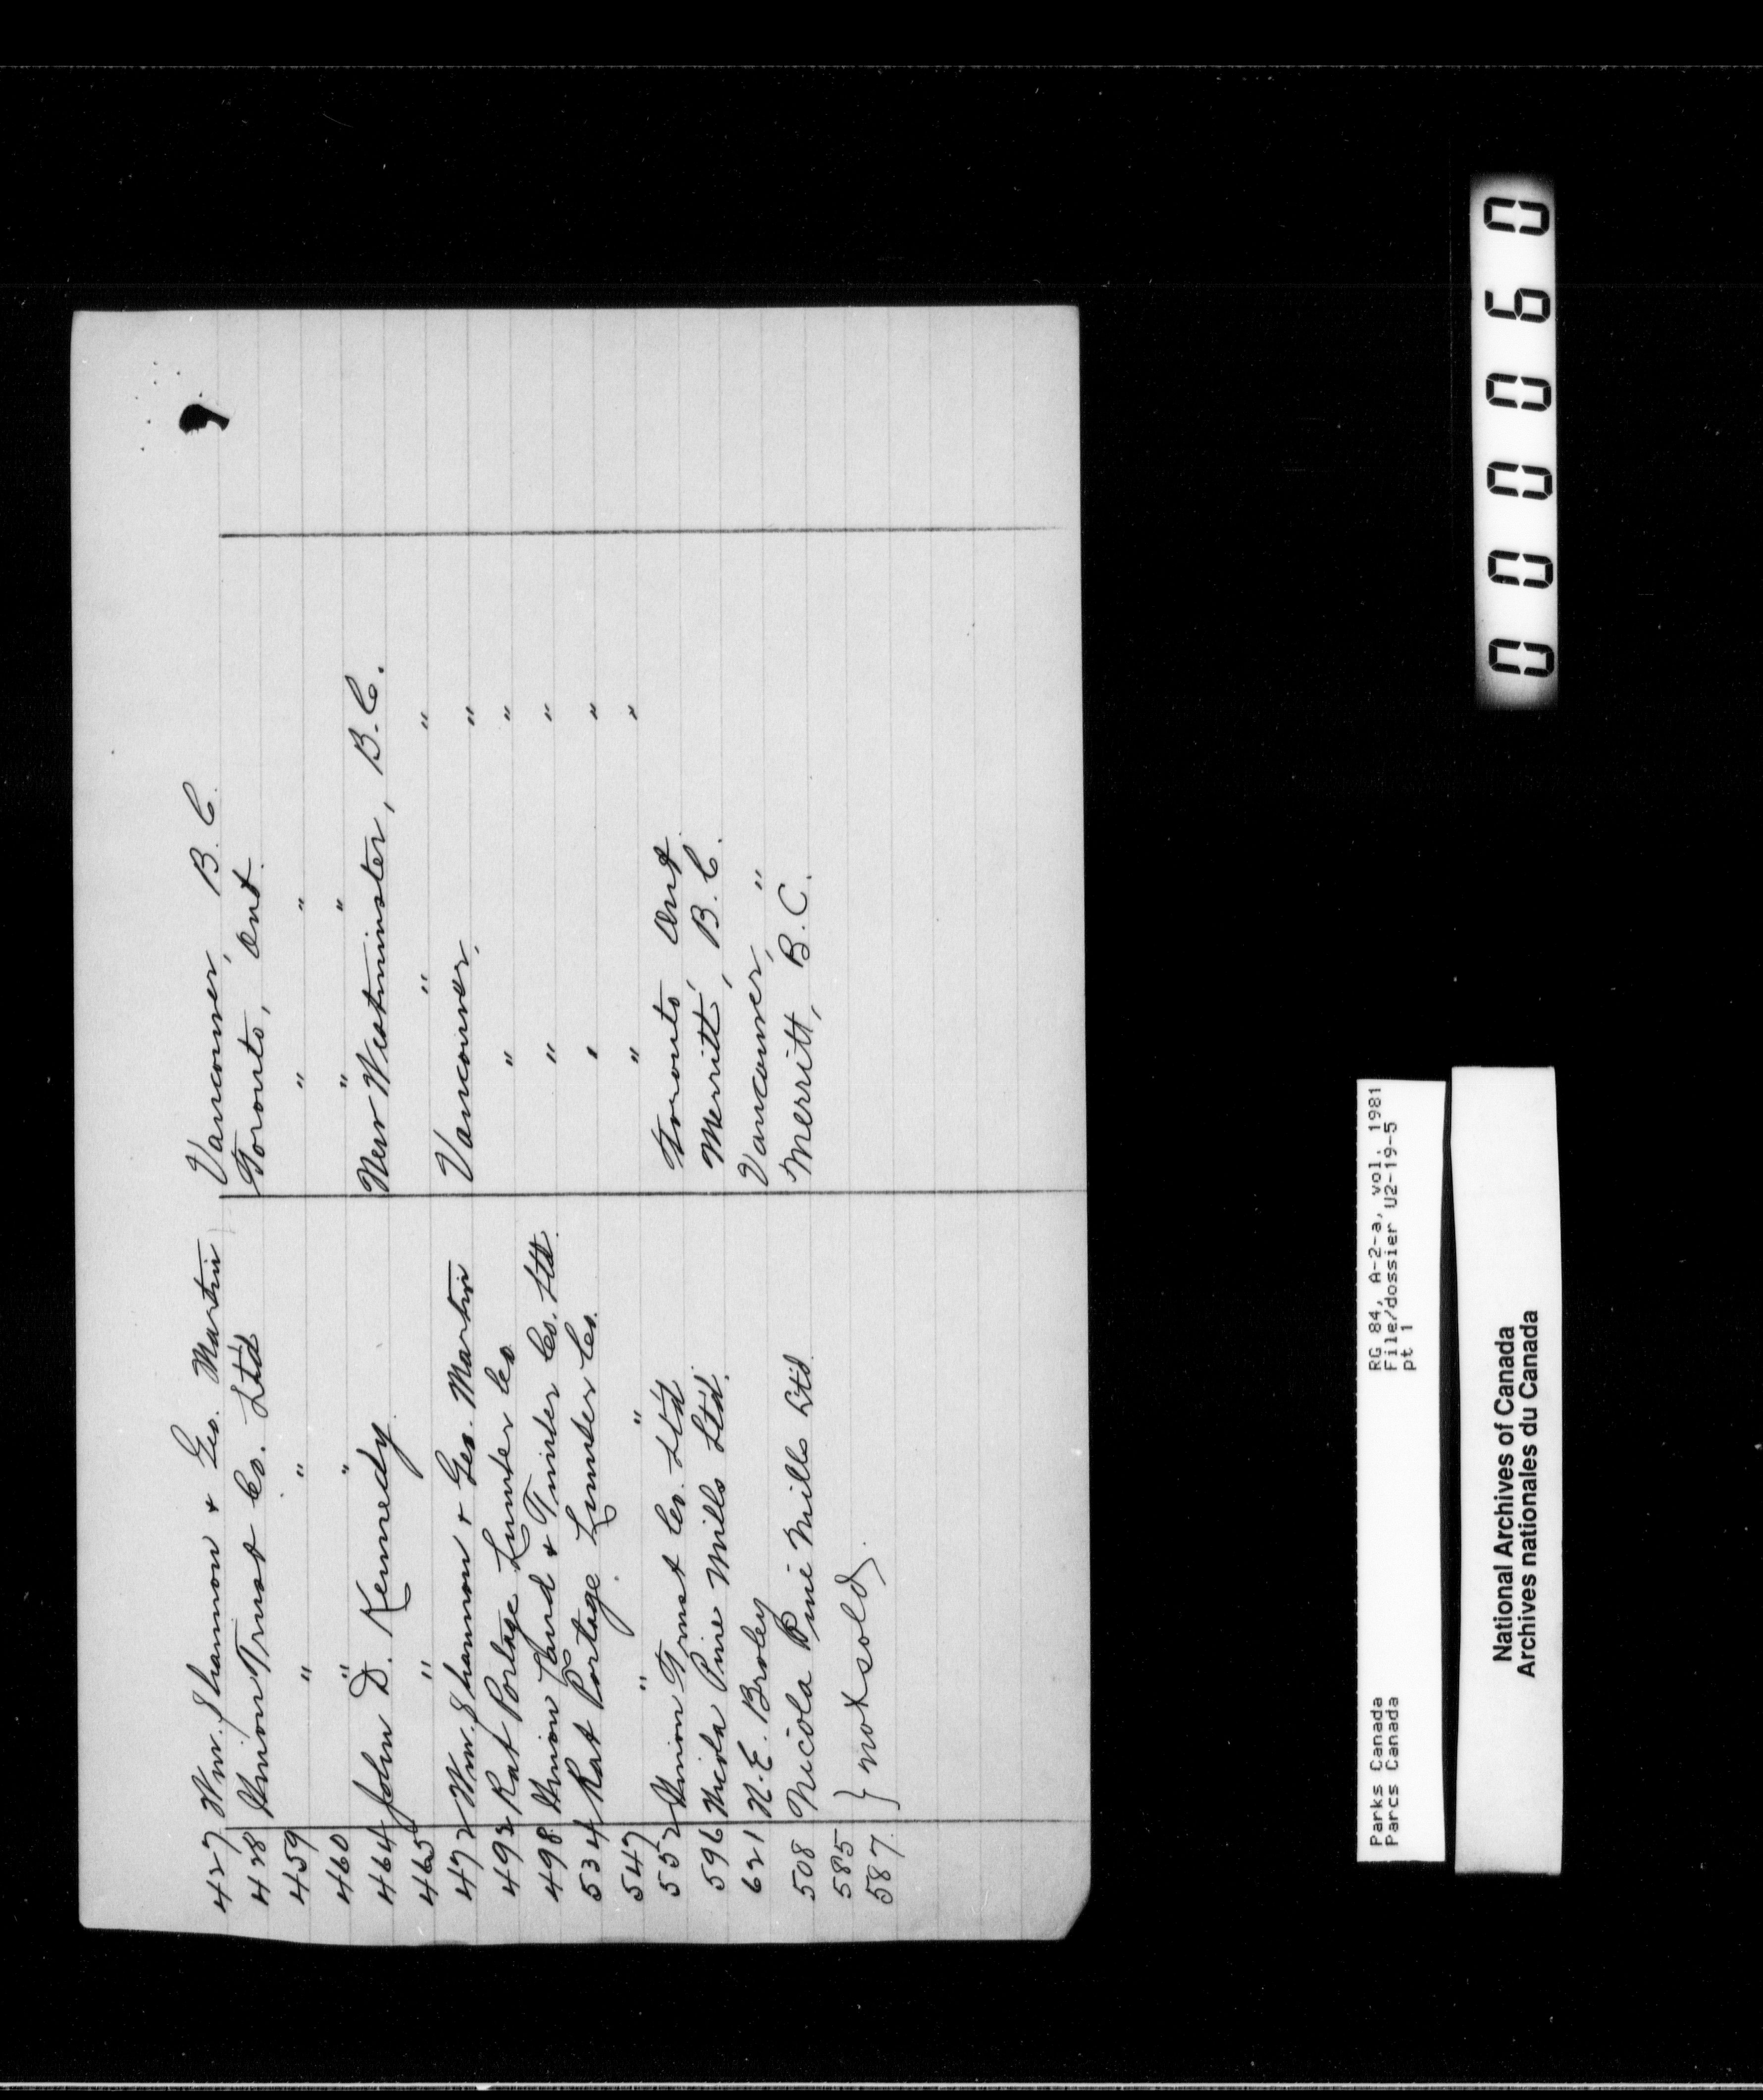 427 Wm. Shannon & Geo. Martin Vancouver, B.C.
428 Union Trust Co. Ltd Toronto, Ont.
459 " " " "
460 " " " "
464 John D. Kennedy New Westminster, B.C.
465 " " "
472 Wm. Shannon & Geo. Martin Vancouver, "
492 Rat Portage Lumber Co " "
498 Union Land & Timber Co. Ltd. " "
534 Rat Portage Lumber Co. " "
547 " " " "
552 Union Trust Co. Ltd Toronto, Ont.
596 Nicola Pine Mills Ltd. Merritt, B.C.
621 N.E. Broley Vancouver, "
508 Nicola Pine Mills Ltd. Merritt, B.C.
585 } not sold.
587.
000060
Parks Canada RG 84, A-2-a, vol. 1981
Parcs Canada File/dossier U2-19-5
pt 1
National Archives of Canada
Archives nationales du Canada